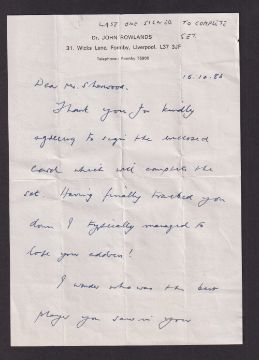 LAST ONE SIGNED TO COMPLETE
SET.
Dr. JOHN ROWLANDS
31, Wicks Lane, Formby, Liverpool, L37 3JF
Telephone: Formby
16.10.86
Dear Mr. Sherwood.
Thank you for kindly
agreeing to sign the enclosed
card which will complete the
set. Having finally tracked you
down I typically managed to
lose your address!
I wonder who was the best
player you saw in your